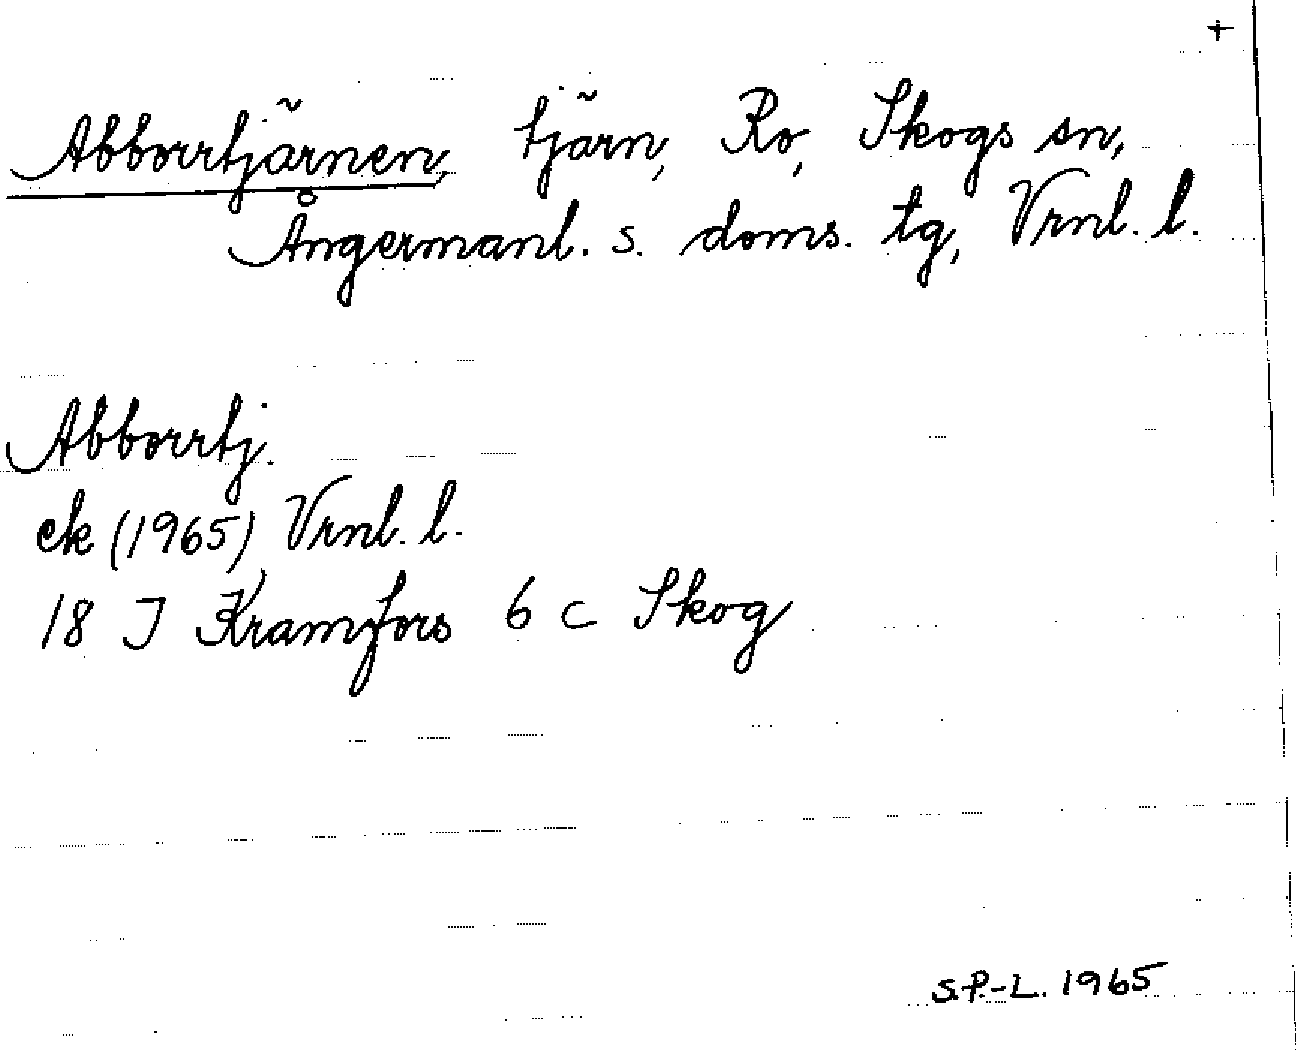 +
Abborrtjärnen, tjärn, Ro, Skogs sn,
Ångermanl. s. doms. tg, Vrnl. l.
Abborrtj.
ek (1965) Vrnl. l.
18 J Kramfors 6 c Skog
S.P.-L. 1965